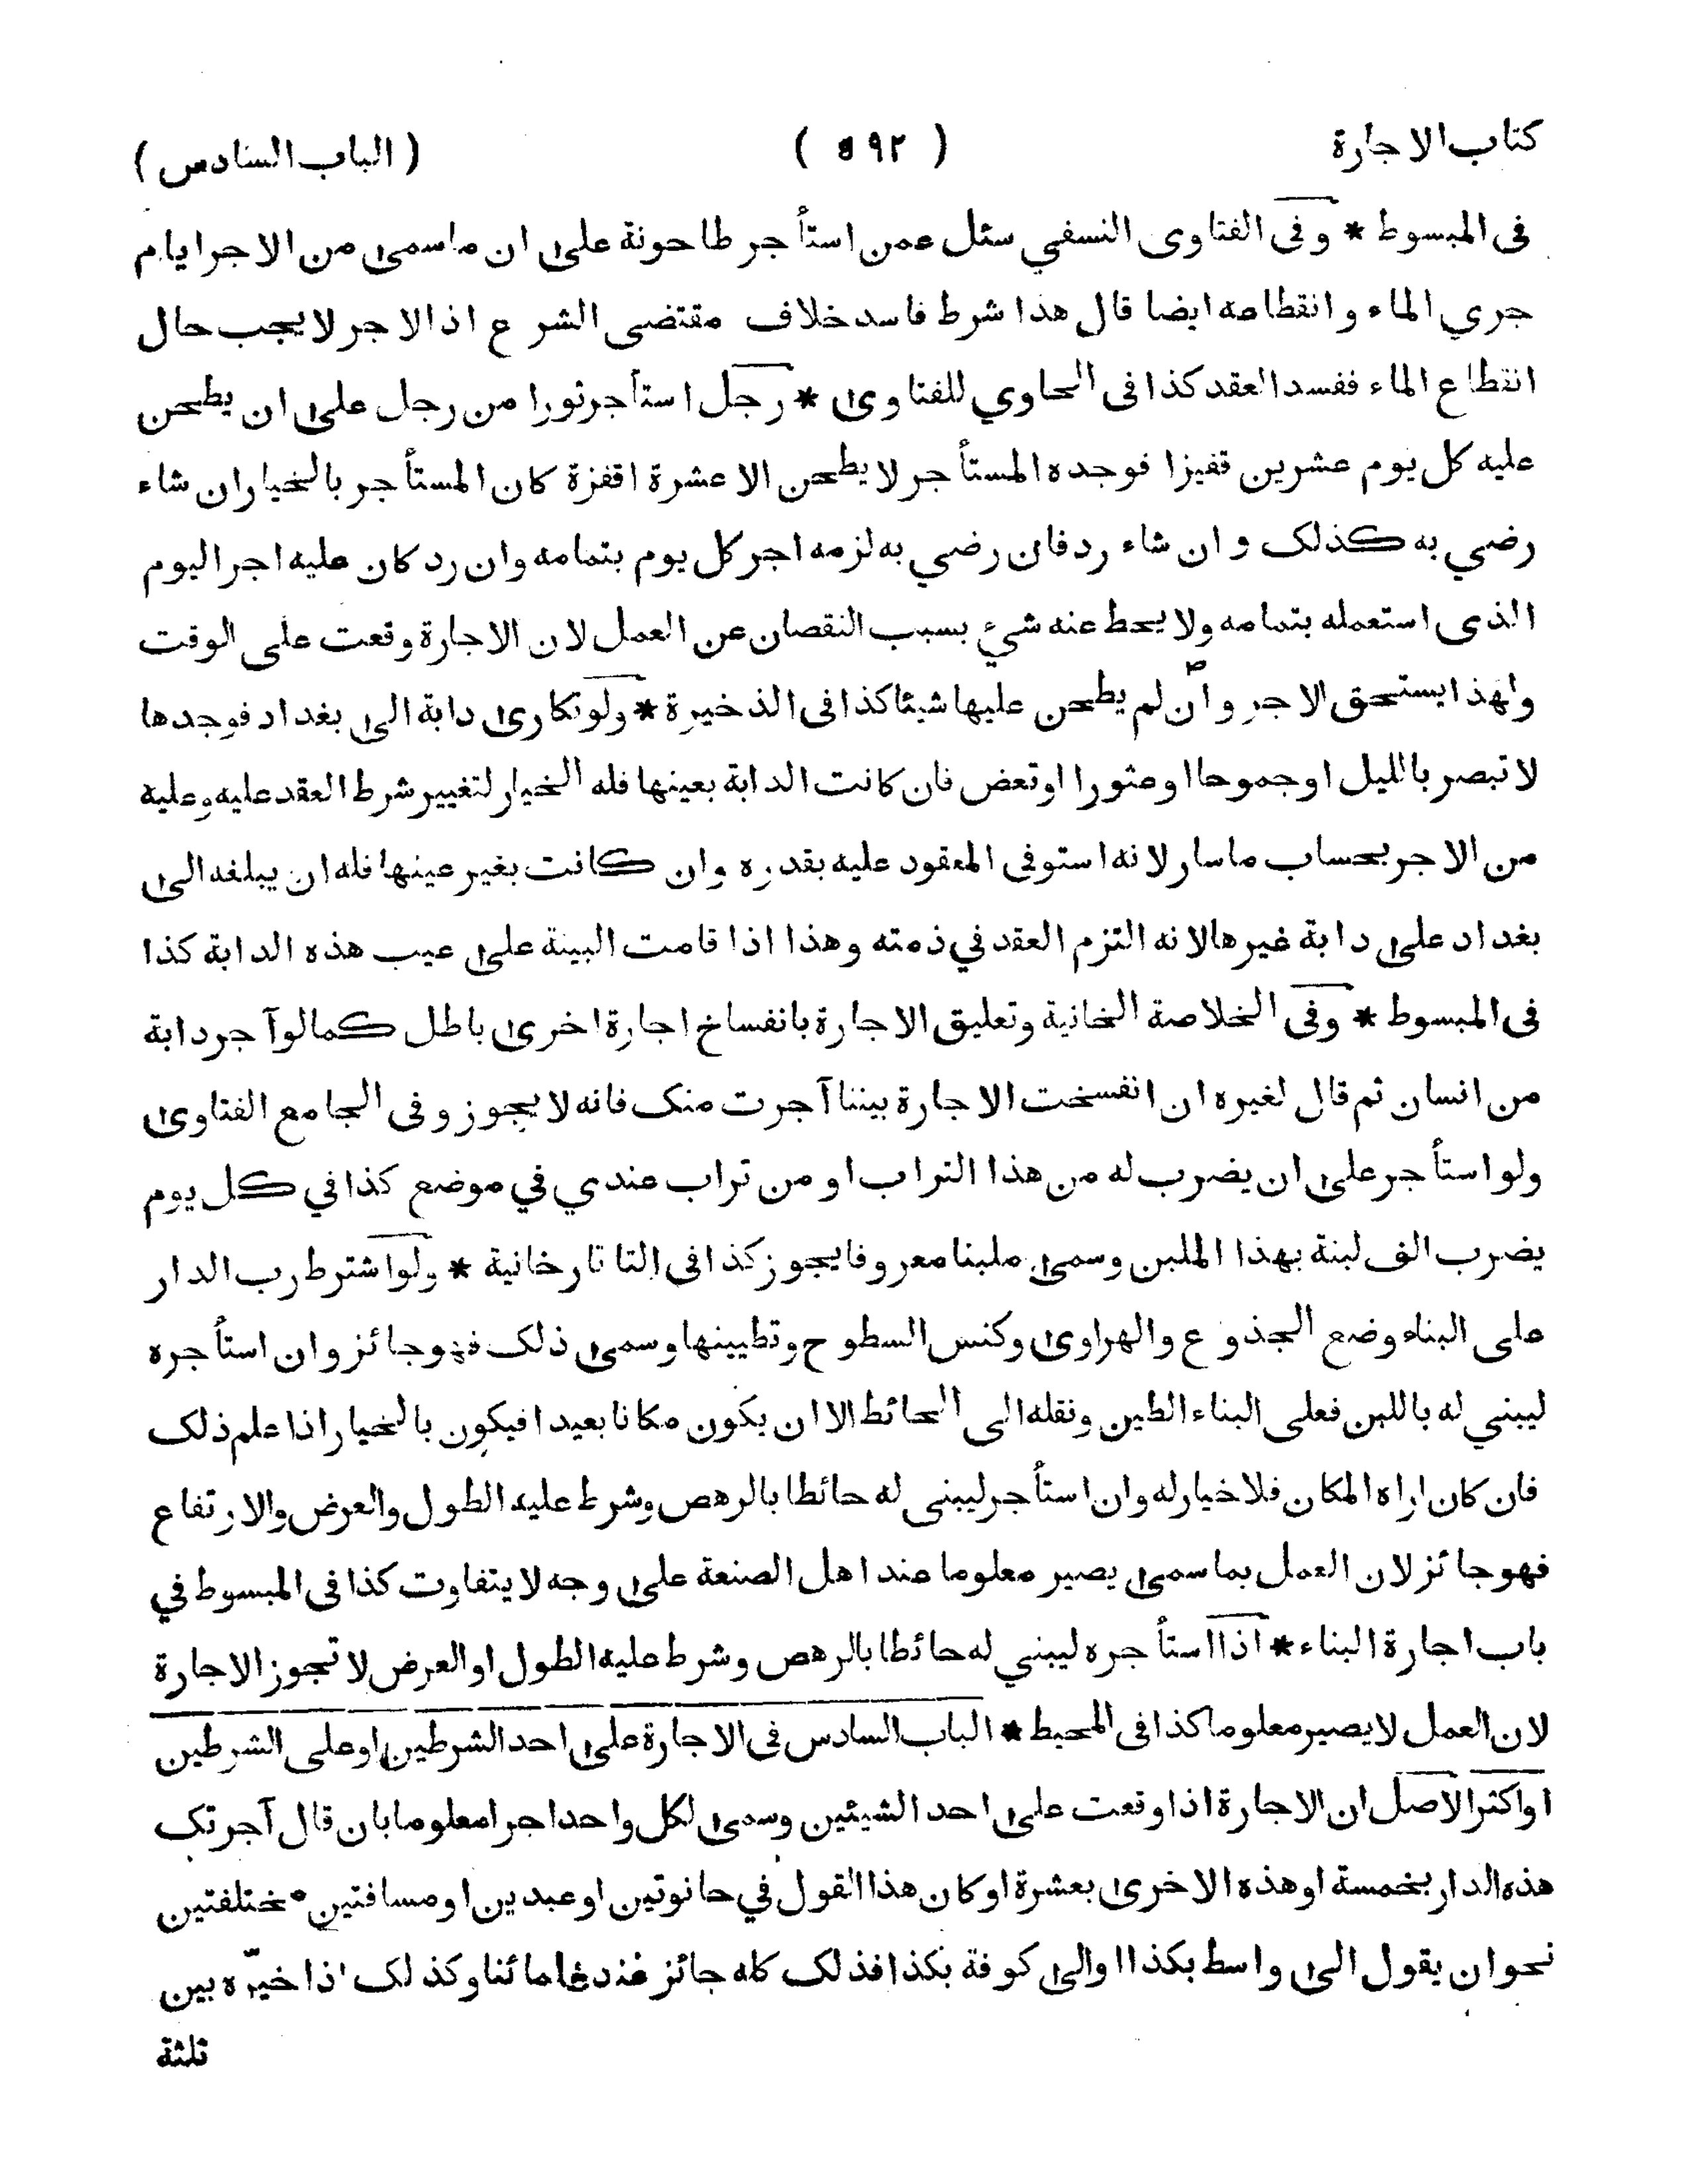 كتاب الاجارة ( ٥٩٢ ) ( الباب السادس )
فى المبسوط * وفى الفتاوى النسفي سئل عمن استأجر طاحونة على ان ما سمى من الاجر ايام
جري الماء وانقطاعه ايضا قال هذا شرط فاسد خلاف مقتضى الشرع اذ الاجر لا يجب حال
انقطاع الماء ففسد العقد كذا فى الحاوي للفتاوى * رجل استأجر ثورا من رجل على ان يطحن
عليه كل يوم عشرين قفيزا فوجده المستأجر لا يطحن الا عشرة اقفزة كان المستأجر بالخيار ان شاء
رضي به كذلك و ان شاء رد فان رضي به لزمه اجر كل يوم بتمامه وان رد كان عليه اجر اليوم
الذى استعمله بتمامه ولا يحط عنه شيء بسبب النقصان عن العمل لان الاجارة وقعت على الوقت
ولهذا يستحق الاجر وان لم يطحن عليها شيئا كذا فى الذخيرة * ولو تكارى دابة الى بغداد فوجدها
لا تبصر بالليل او جموحا او عثورا او تعض فان كانت الدابة بعينها فله الخيار لتغيير شرط العقد عليه وعليه
من الاجر بحساب ما سار لانه استوفى المعقود عليه بقدره وان كانت بغير عينها فله ان يبلغه الى
بغداد على دابة غيرها لانه التزم العقد في ذمته وهذا اذا قامت البينة على عيب هذه الدابة كذا
فى المبسوط * وفى الخلاصة الخانية وتعليق الاجارة بانفساخ اجارة اخرى باطل كما لو آجر دابة
من انسان ثم قال لغيره ان انفسخت الاجارة بيننا آجرت منك فانه لا يجوز وفى الجامع الفتاوى
ولو استأجر على ان يضرب له من هذا التراب او من تراب عندي في موضع كذا في كل يوم
يضرب الف لبنة بهذا الملبن وسمى ملبنا معروفا يجوز كذا فى التاتارخانية * ولو اشترط رب الدار
على البناء وضع الجذوع والهراوى وكنس السطوح وتطيينها وسمى ذلك فهو جائز وان استأجره
ليبني له باللبن فعلى البناء الطين ونقله الى الحائط الا ان يكون مكانا بعيدا فيكون بالخيار اذا علم ذلك
فان كان اراه المكان فلا خيار له وان استأجر ليبنى له حائطا بالرهص وشرط عليه الطول والعرض والارتفاع
فهو جائز لان العمل بما سمى يصير معلوما عند اهل الصنعة على وجه لا يتفاوت كذا فى المبسوط في
باب اجارة البناء * اذا استأجره ليبني له حائطا بالرهص وشرط عليه الطول او العرض لا تجوز الاجارة
لان العمل لا يصير معلوما كذا فى المحيط * الباب السادس فى الاجارة على احد الشرطين او على الشرطين
او اكثر الاصل ان الاجارة اذا وقعت على احد الشيئين وسمى لكل واحد اجرا معلوما بان قال آجرتك
هذه الدار بخمسة او هذه الاخرى بعشرة او كان هذا القول في حانوتين او عبدين او مسافتين مختلفتين
نحو ان يقول الى واسط بكذا او الى كوفة بكذا فذلك كله جائز عند علمائنا وكذلك اذا خيّره بين
ثلثة